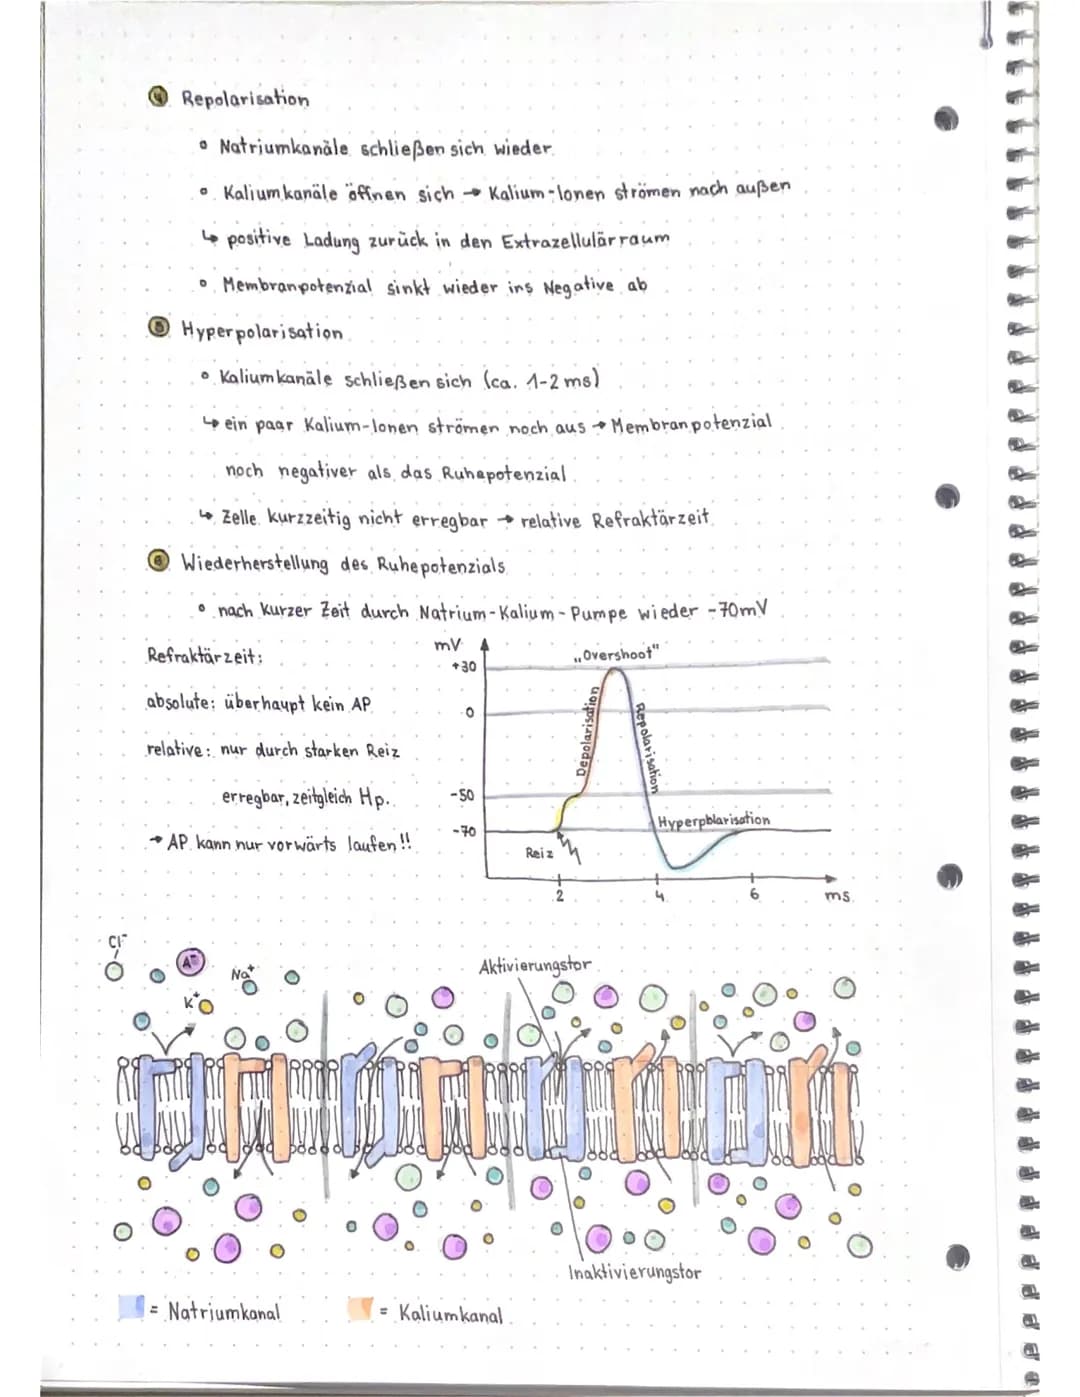 4 Repolarisation
° Natriumkanäle schließen sich wieder
° Kaliumkanäle öffnen sich → Kalium-Ionen strömen nach außen
↳ positive Ladung zurück in den Extrazellulärraum
° Membranpotenzial sinkt wieder ins Negative ab
5 Hyperpolarisation
° Kaliumkanäle schließen sich (ca. 1-2 ms)
↳ ein paar Kalium-Ionen strömen noch aus → Membranpotenzial
noch negativer als das Ruhepotenzial
↳ Zelle kurzzeitig nicht erregbar → relative Refraktärzeit
6 Wiederherstellung des Ruhepotenzials
° nach kurzer Zeit durch Natrium-Kalium-Pumpe wieder -70mV
Refraktärzeit:
absolute: überhaupt kein AP
relative: nur durch starken Reiz
erregbar, zeitgleich Hp.
→ AP kann nur vorwärts laufen!!
mV
+30
0
-50
-70
„Overshoot"
Depolarisation
Repolarisation
Hyperpolarisation
Reiz
2
4
6
ms
Cl⁻
A⁻
Na⁺
K⁺
Aktivierungstor
Inaktivierungstor
= Natriumkanal
= Kaliumkanal